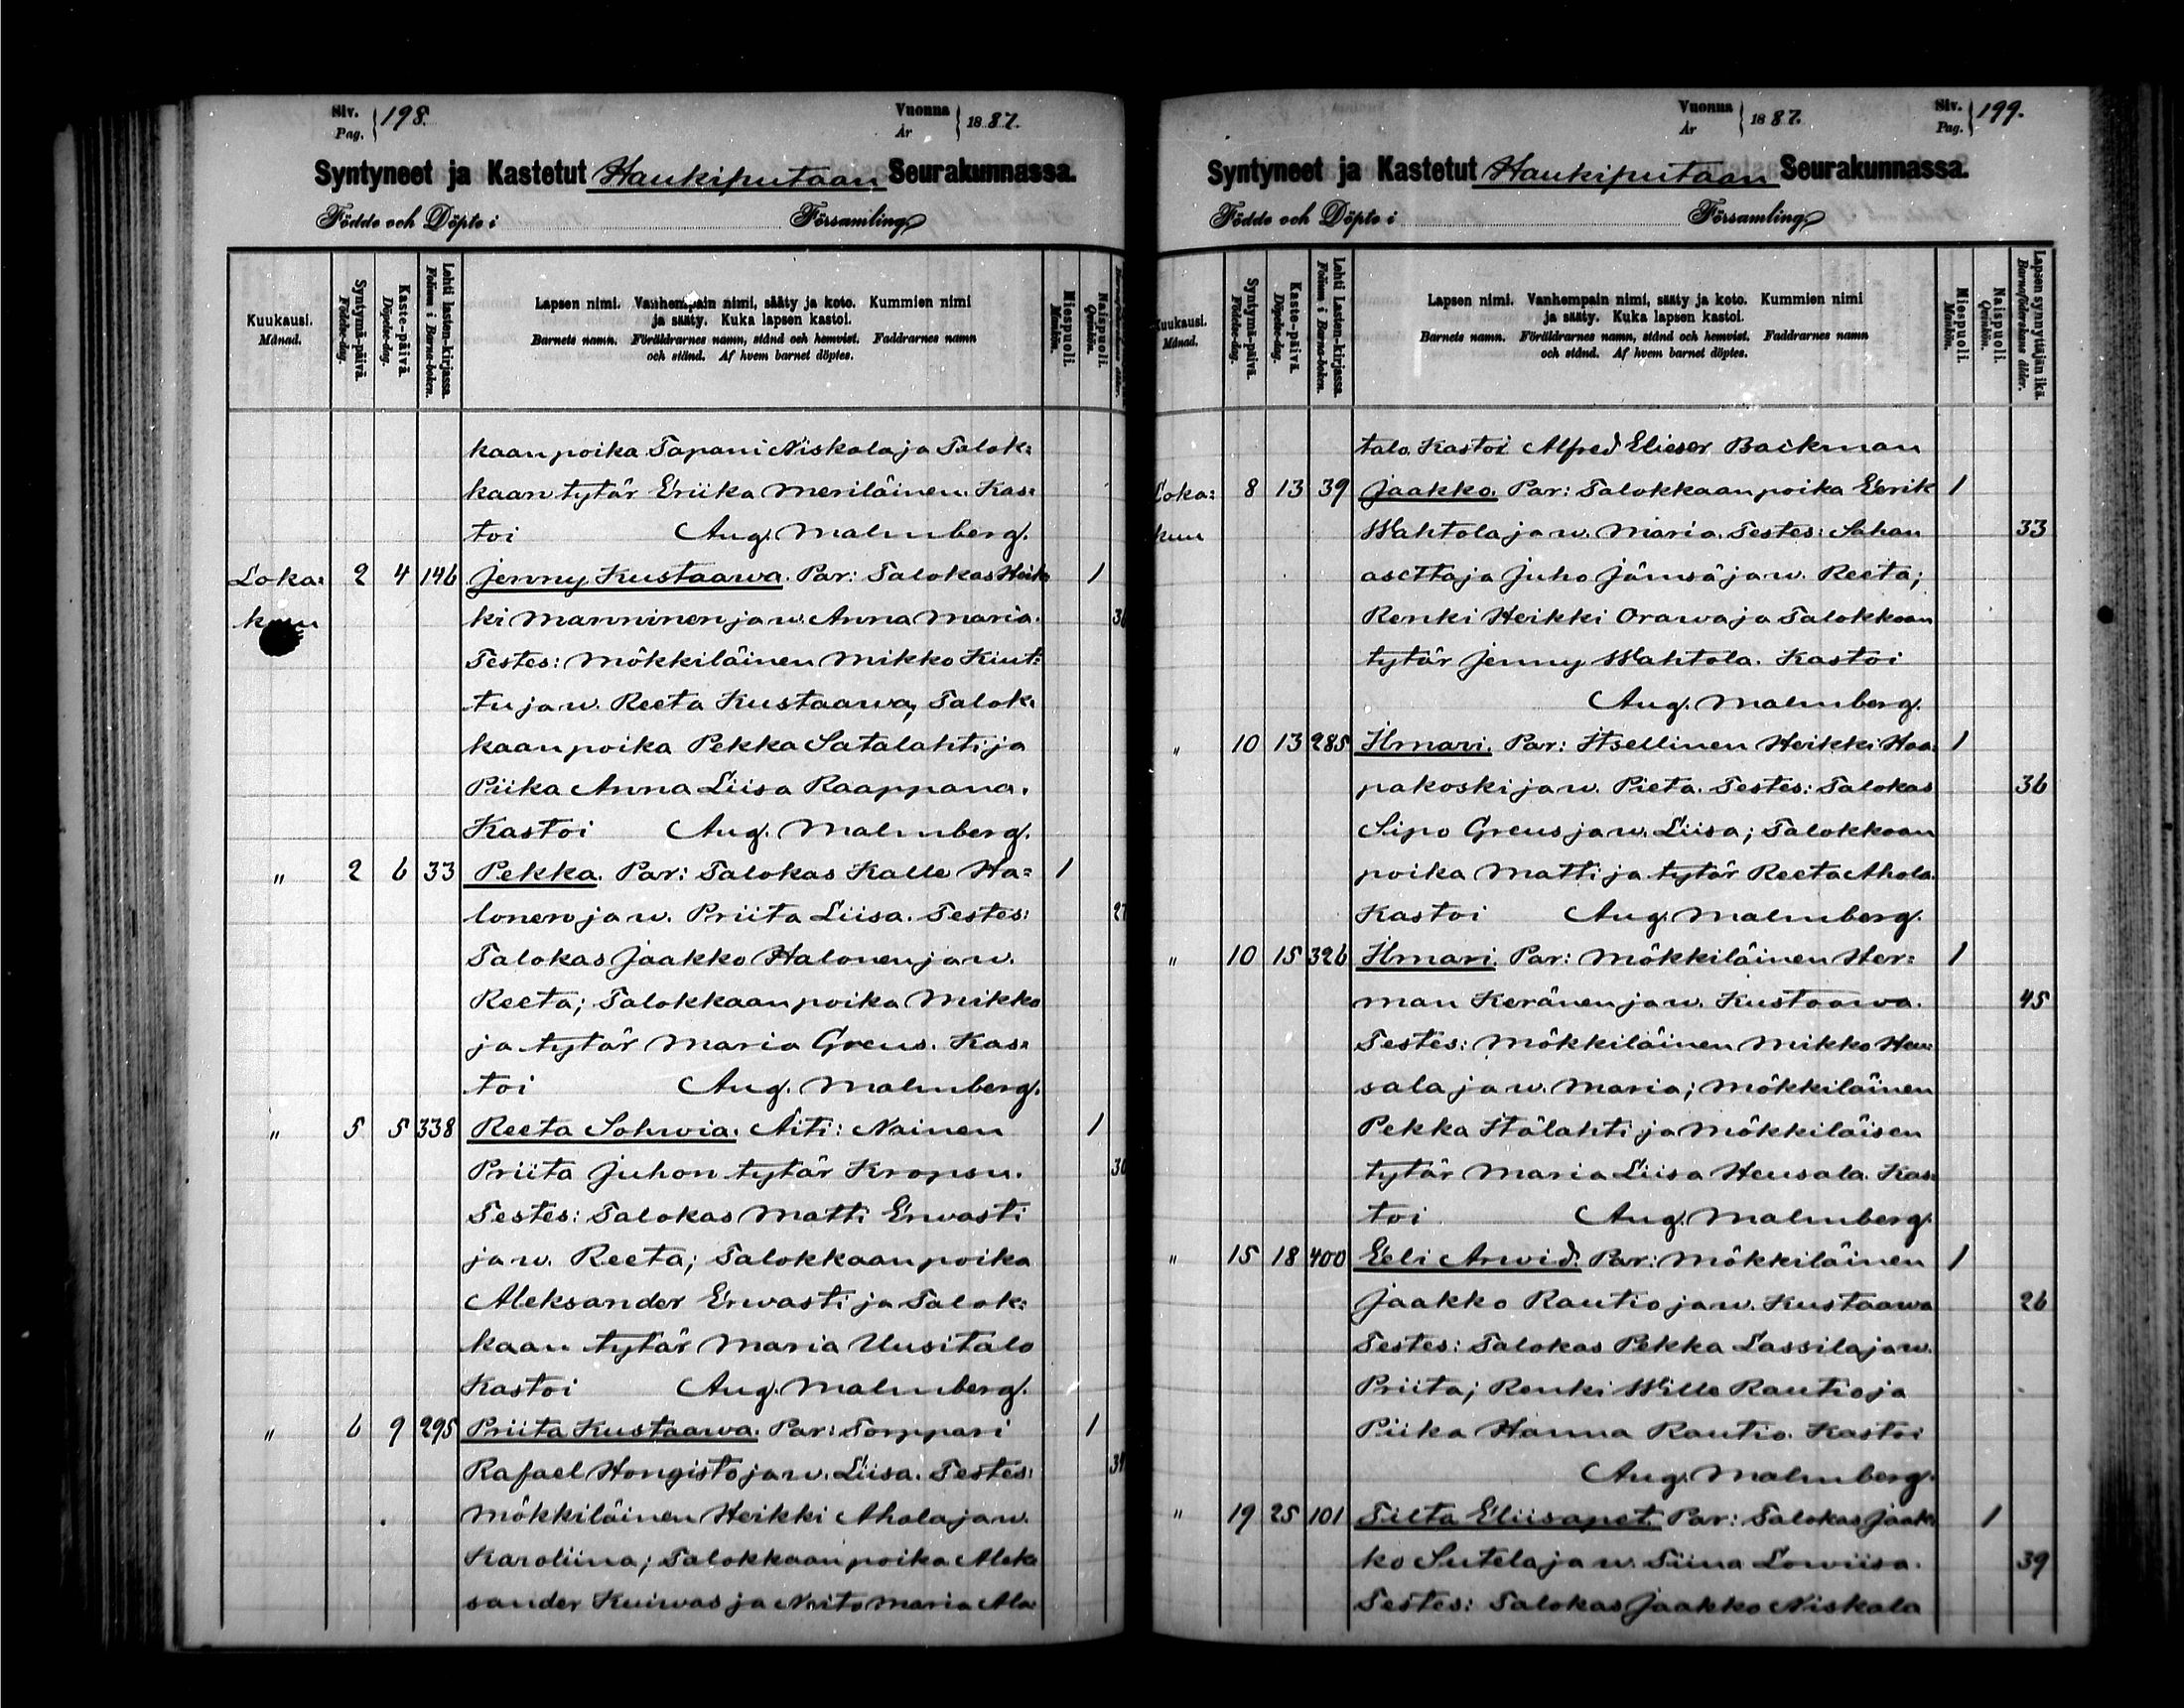 Siv. Pag. 198. Vuonna År 1887.
Syntyneet ja Kastetut Haukiputaan Seurakunnassa.
Födde och Döpte i Församling
Kuukausi. Månad.
Syntymä-päivä. Födelse-dag.
Kaste-päivä. Döpelse-dag.
Lehti lasten-kirjassa. Folium i Barna-boken.
Lapsen nimi. Vanhempain nimi, sääty ja koto. Kummien nimi
ja sääty. Kuka lapsen kastoi.
Barnets namn. Föräldrarnes namn, stånd och hemvist. Faddrarnes namn
och stånd. Af hvem barnet döptes.
Miespuoli. Mankön.
Naispuoli. Qvinkön.
kaan poika Tapani Niskala ja Talok:
kaan tytär Eriika Meriläinen. Kas:
toi Aug. Malmberg.
Loka: 2 4 146 Jenny Kustaawa. Par: Talokas Heik 1
kuu ki Manninen ja w. Anna Maria.
Testes: Mökkiläinen Mikko Kiut:
tu ja w. Reeta Kustaawa, Talok:
kaan poika Pekka Satalahti ja
Piika Anna Liisa Raappana.
Kastoi Aug. Malmberg.
" 2 6 33 Pekka. Par: Talokas Kalle Ha= 1
lonen ja w. Priita Liisa. Testes: 27
Talokas Jaakko Halonen ja w.
Reeta; Talokkaan poika Mikko
ja tytär Maria Greus. Kas:
toi Aug. Malmberg.
" 5 5 338 Reeta Sohwia. Äiti: Nainen 1
Priita Juhon tytär Kropsu. 30
Testes: Talokas Matti Erwasti
ja w. Reeta; Talokkaan poika
Aleksander Erwasti ja Talok:
kaan tytär Maria Uusitalo
Kastoi Aug. Malmberg.
" 6 9 295 Priita Kustaawa. Par: Torppari 1
Rafael Hongisto ja w. Liisa. Testes:
Mökkiläinen Heikki Ahola ja w.
Karoliina; Talokkaan poika Alek
sander Kuiwas ja Neito Maria Ala
Vuonna År 1887. Siv. Pag. 199.
Syntyneet ja Kastetut Haukiputaan Seurakunnassa.
Födde och Döpte i Församling
Kuukausi. Månad.
Syntymä-päivä. Födelse-dag.
Kaste-päivä. Döpelse-dag.
Lehti lasten-kirjassa. Folium i Barna-boken.
Lapsen nimi. Vanhempain nimi, sääty ja koto. Kummien nimi
ja sääty. Kuka lapsen kastoi.
Barnets namn. Föräldrarnes namn, stånd och hemvist. Faddrarnes namn
och stånd. Af hvem barnet döptes.
Miespuoli. Mankön.
Naispuoli. Qvinkön.
Lapsen synnyttäjän ikä. Barnaföderskans ålder.
talo. Kastoi Alfred Elieser Backman
Loka: 8 13 39 Jaakko. Par: Talokkaan poika Eerik 1
kuu Wahtola ja w. Maria. Testes: Sahan 33
asettaja Juho Jämsä ja w. Reeta;
Renki Heikki Orawa ja Talokkaan
tytär Jenny Wahtola. Kastoi
Aug. Malmberg.
" 10 13 285 Ilmari. Par: Itsellinen Heikki Haa: 1
pakoski ja w. Pieta. Testes: Talokas 36
Sipo Greus ja w. Liisa; Talokkaan
poika Matti ja tytär Reeta Ahola.
Kastoi Aug. Malmberg.
" 10 15 326 Ilmari. Par: Mökkiläinen Her: 1
man Keränen ja w. Kustaawa. 45
Testes: Mökkiläinen Mikko Heu:
sala ja w. Maria; Mökkiläinen
Pekka Itälahti ja Mökkiläisen
tytär Maria Liisa Heusala. Kas:
toi Aug. Malmberg.
" 15 18 400 Eeli Arwid. Par: Mökkiläinen 1
Jaakko Rautio ja w. Kustaawa 26
Testes: Talokas Pekka Lassila ja w.
Priita; Renki Wille Rautio ja
Piika Hanna Rautio. Kastoi
Aug. Malmberg.
" 19 25 101 Tilta Eliisapet. Par: Talokas Jaak: 1
ko Sutela ja w. Tiina Lowiisa. 39
Testes: Talokas Jaakko Niskala